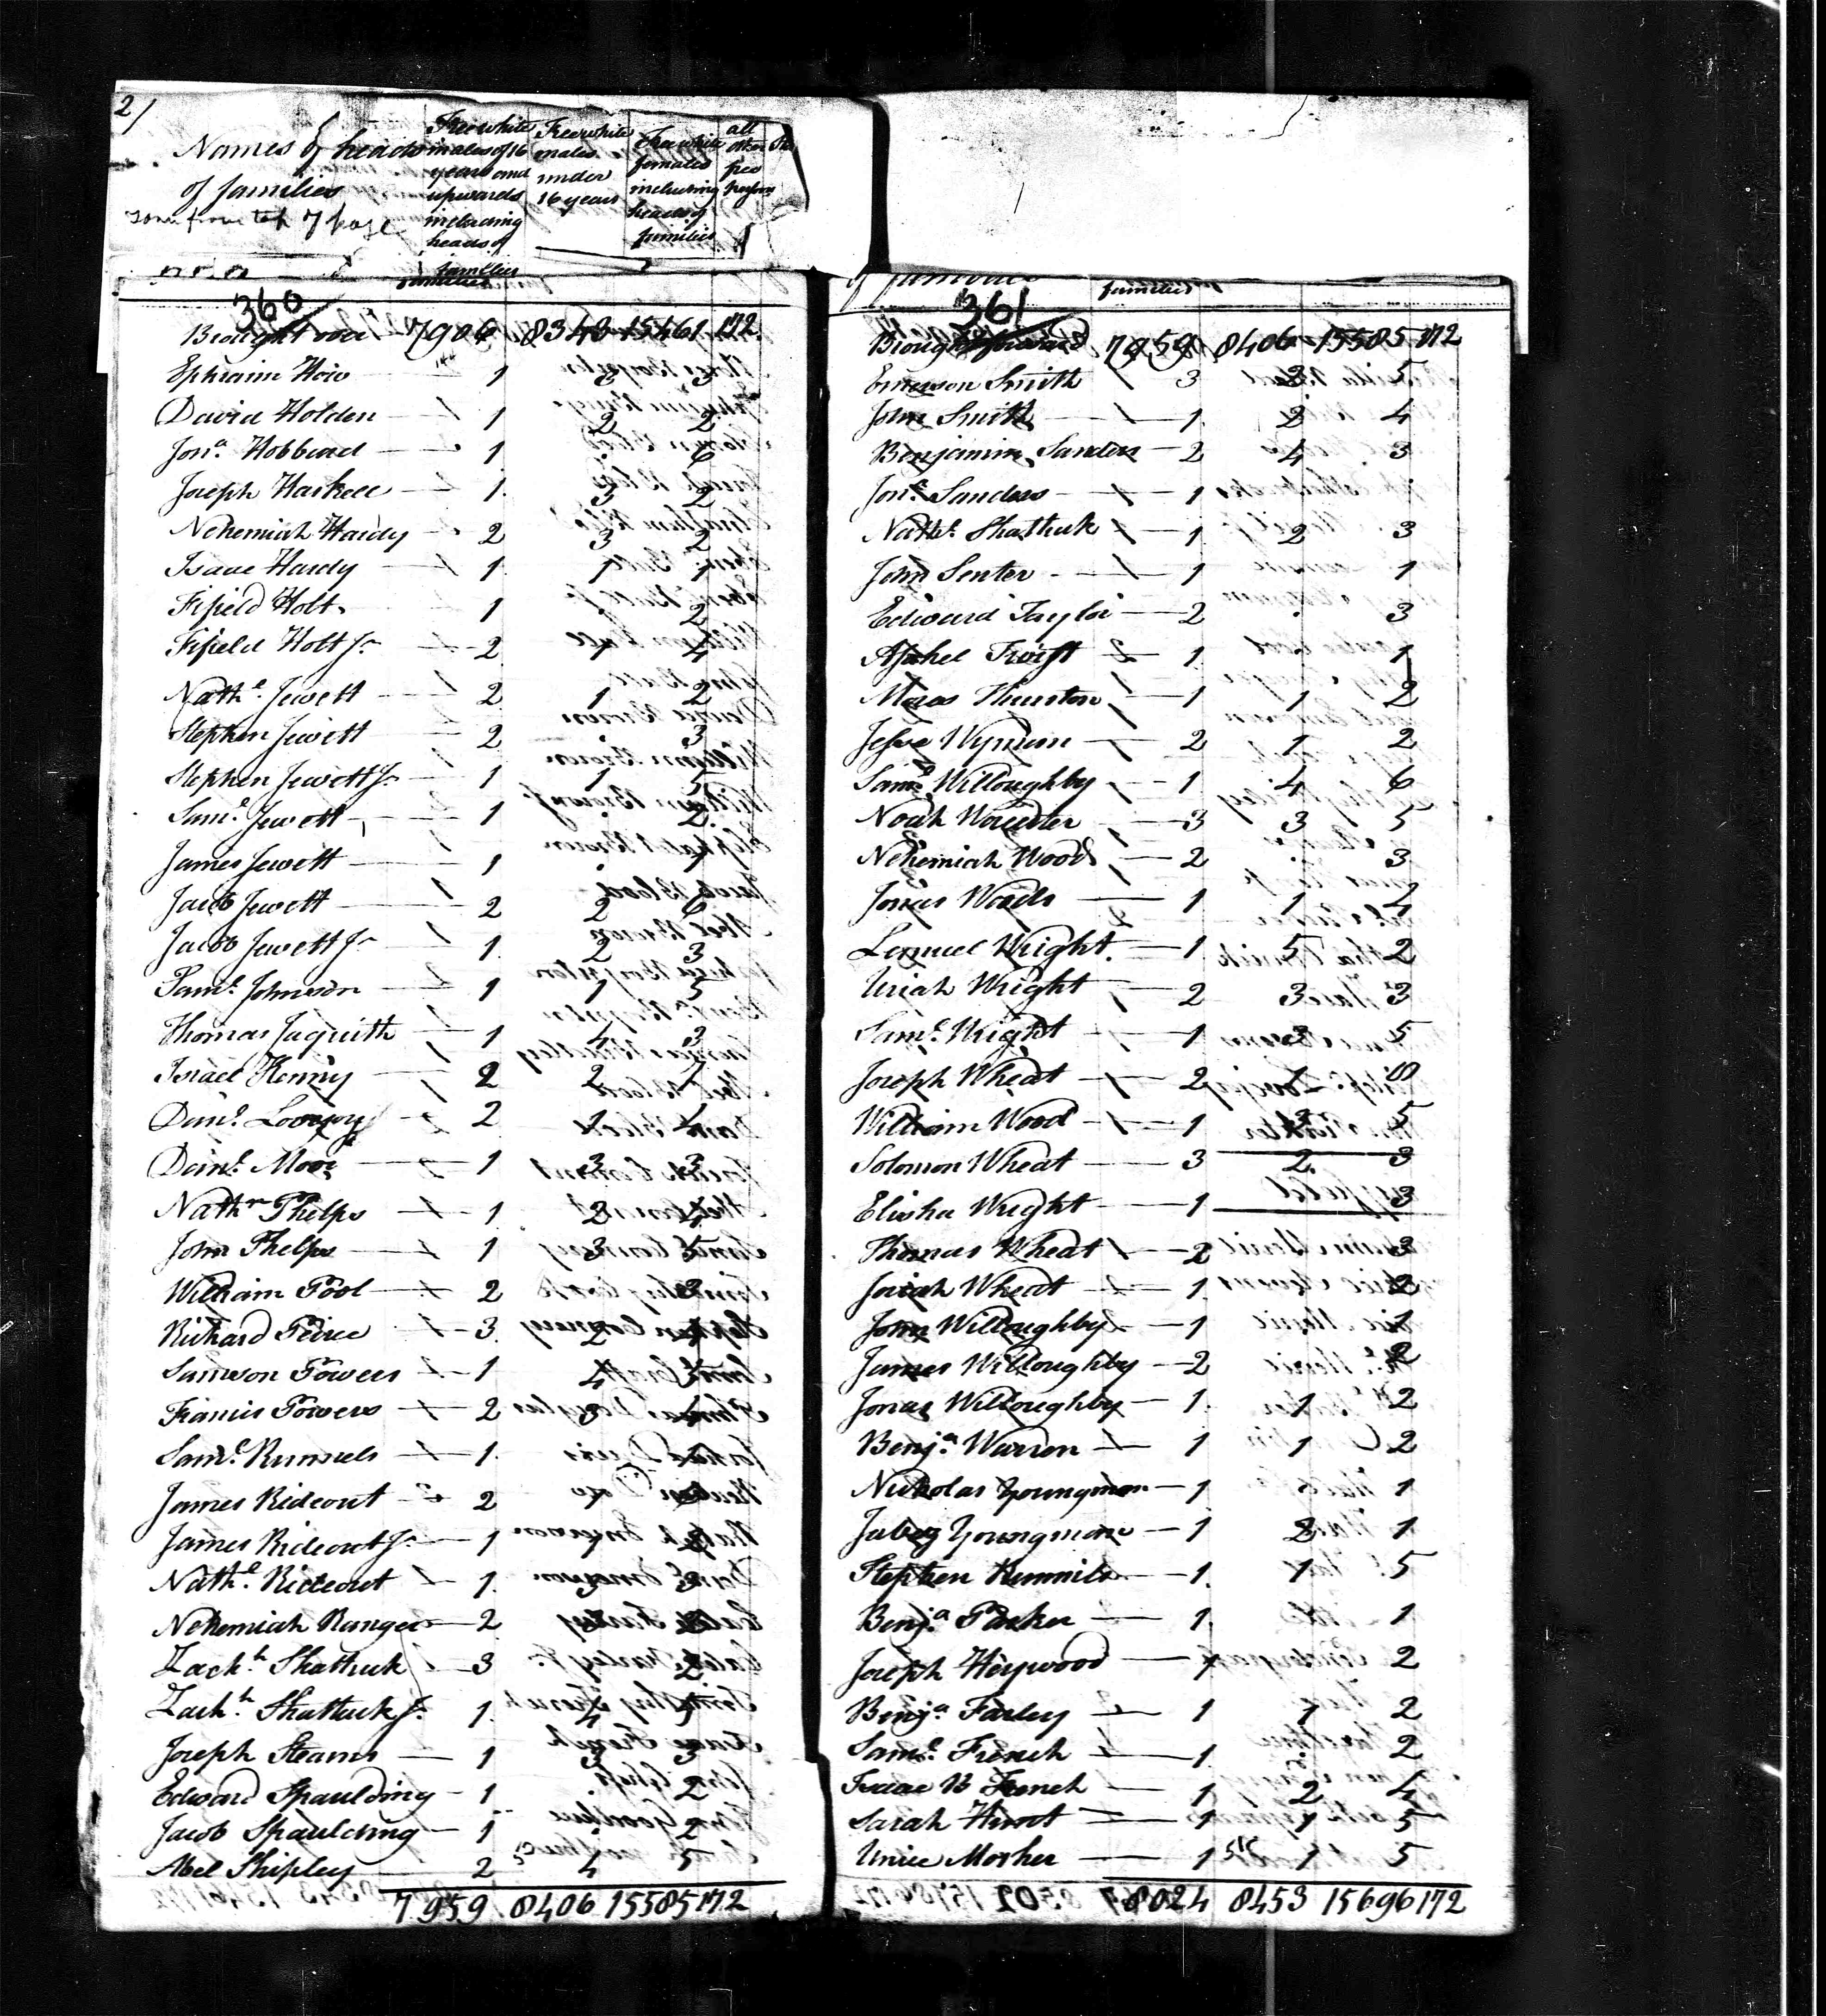 2/
Names of heads of families
Free white males of 16 years and upwards including heads of families
Free white males under 16 years
Free white females including heads of families
all other free persons
360
Brought over 7906 8340 15461 172
Ephraim How 1 3
David Holden 1 2 2
Jona. Hobbard 1 6
Joseph Haskell 1 3 2
Nehemiah Hardy 2 3 2
Isaac Hardy 1 1 1
Fifield Holt 1 2
Fifield Holt Jr 2 1 4
Nathl. Jewett 2 1 2
Stephen Jewett 2 3
Stephen Jewett Jr 1 1 5
Saml. Jewett 1 2
James Jewett 1
Jacob Jewett 2 2 6
Jacob Jewett Jr 1 2 3
Saml. Johnson 1 1 5
Thomas Jaquith 1 4 3
Israel Kenny 2 2
Danl. Lovejoy 2 1 4
Danl. Moor 1 3 3
Nathn Phelps 1 2
John Phelps 1 3
William Pool 2 3
Richard Peirce 3 2
Samson Powers 1 4
Francis Powers 2
Saml. Runnels 1
James Rideout 2
James Rideout Jr 1
Nathl. Rideout 1
Nehemiah Ranger 2
Zachh Shattuck 3 2
Zachh. Shattuck Jr. 1 4
Joseph Stearns 1 3 3
Edward Spaulding 1 2
Jacob Spaulding 1 2
Abel Shipley 2 4 5
7959 8406 15585 172
of families families
361
Brought forward 7959 8406 15585 172
Emerson Smith 3 5
John Smith 1 2 4
Benjamin Sanders 2 4 3
Jona. Sanders 1
Nathl. Shattuck 1 2 3
John Senter 1 1
Edward Taylor 2 3
Asahel Twist 1 1
Moses Thurston 1 1 2
Jesse Wyman 2 1 2
Saml. Willoughby 1 4 6
Noah Worcester 3 3 5
Nehemiah Woods 2 3
Jonas Woods 1 1 2
Lemuel Wright 1 5 2
Uriah Wright 2 3 3
Saml. Wright 1 3 5
Joseph Wheat 2 1
William Wood 1 5
Solomon Wheat 3 2 3
Elisha Wright 1 3
Thomas Wheat 2 3
Josiah Wheat 1 2
John Willoughby 1 1
James Willoughby 2 2
Jonas Willoughby 1 1 2
Benja. Warren 1 1 2
Nicholas Youngman 1 1
Jabez Youngman 1 2 1
Stephen Runnils 1 1 5
Benja. Parker 1 1
Joseph Heywood 1 2
Benja. Farley 1 1 2
Saml. French 1 2
Isaac B French 1 2 4
Sarah Hunt 1 1 5
Unice Mosher 1 1 5
8024 8453 15696 172